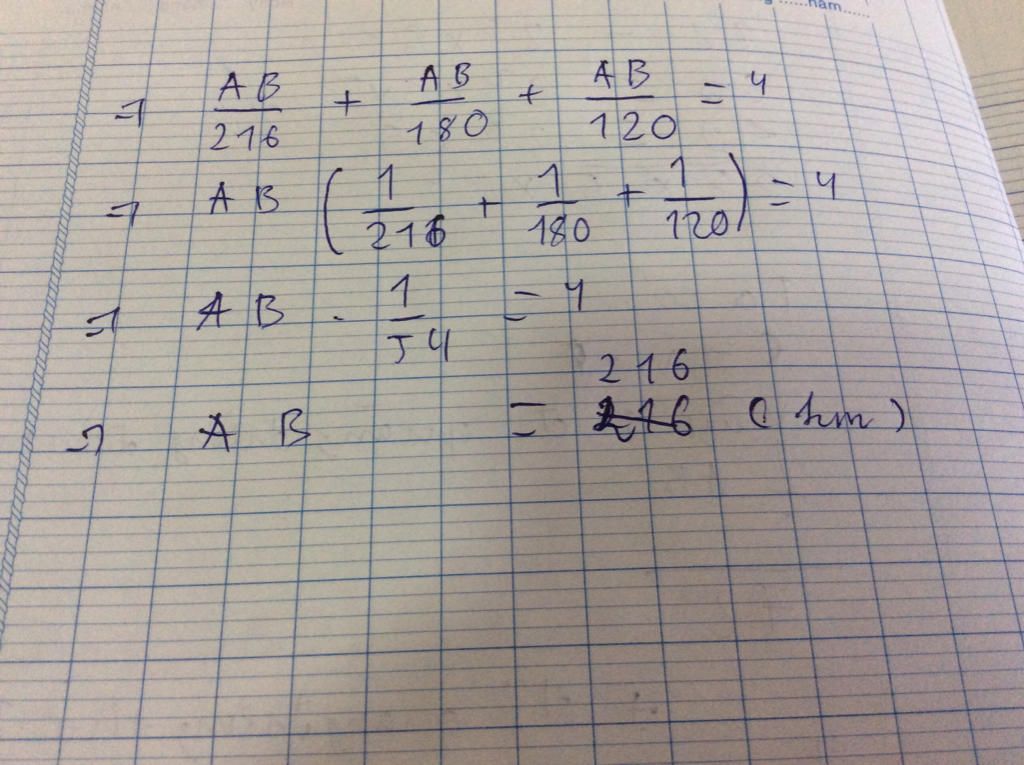 ......năm......
⇒ AB/216 + AB/180 + AB/120 = 4
⇒ AB (1/216 + 1/180 + 1/120) = 4
⇒ AB . 1/54 = 4
216
⇒ AB = 216 (km)